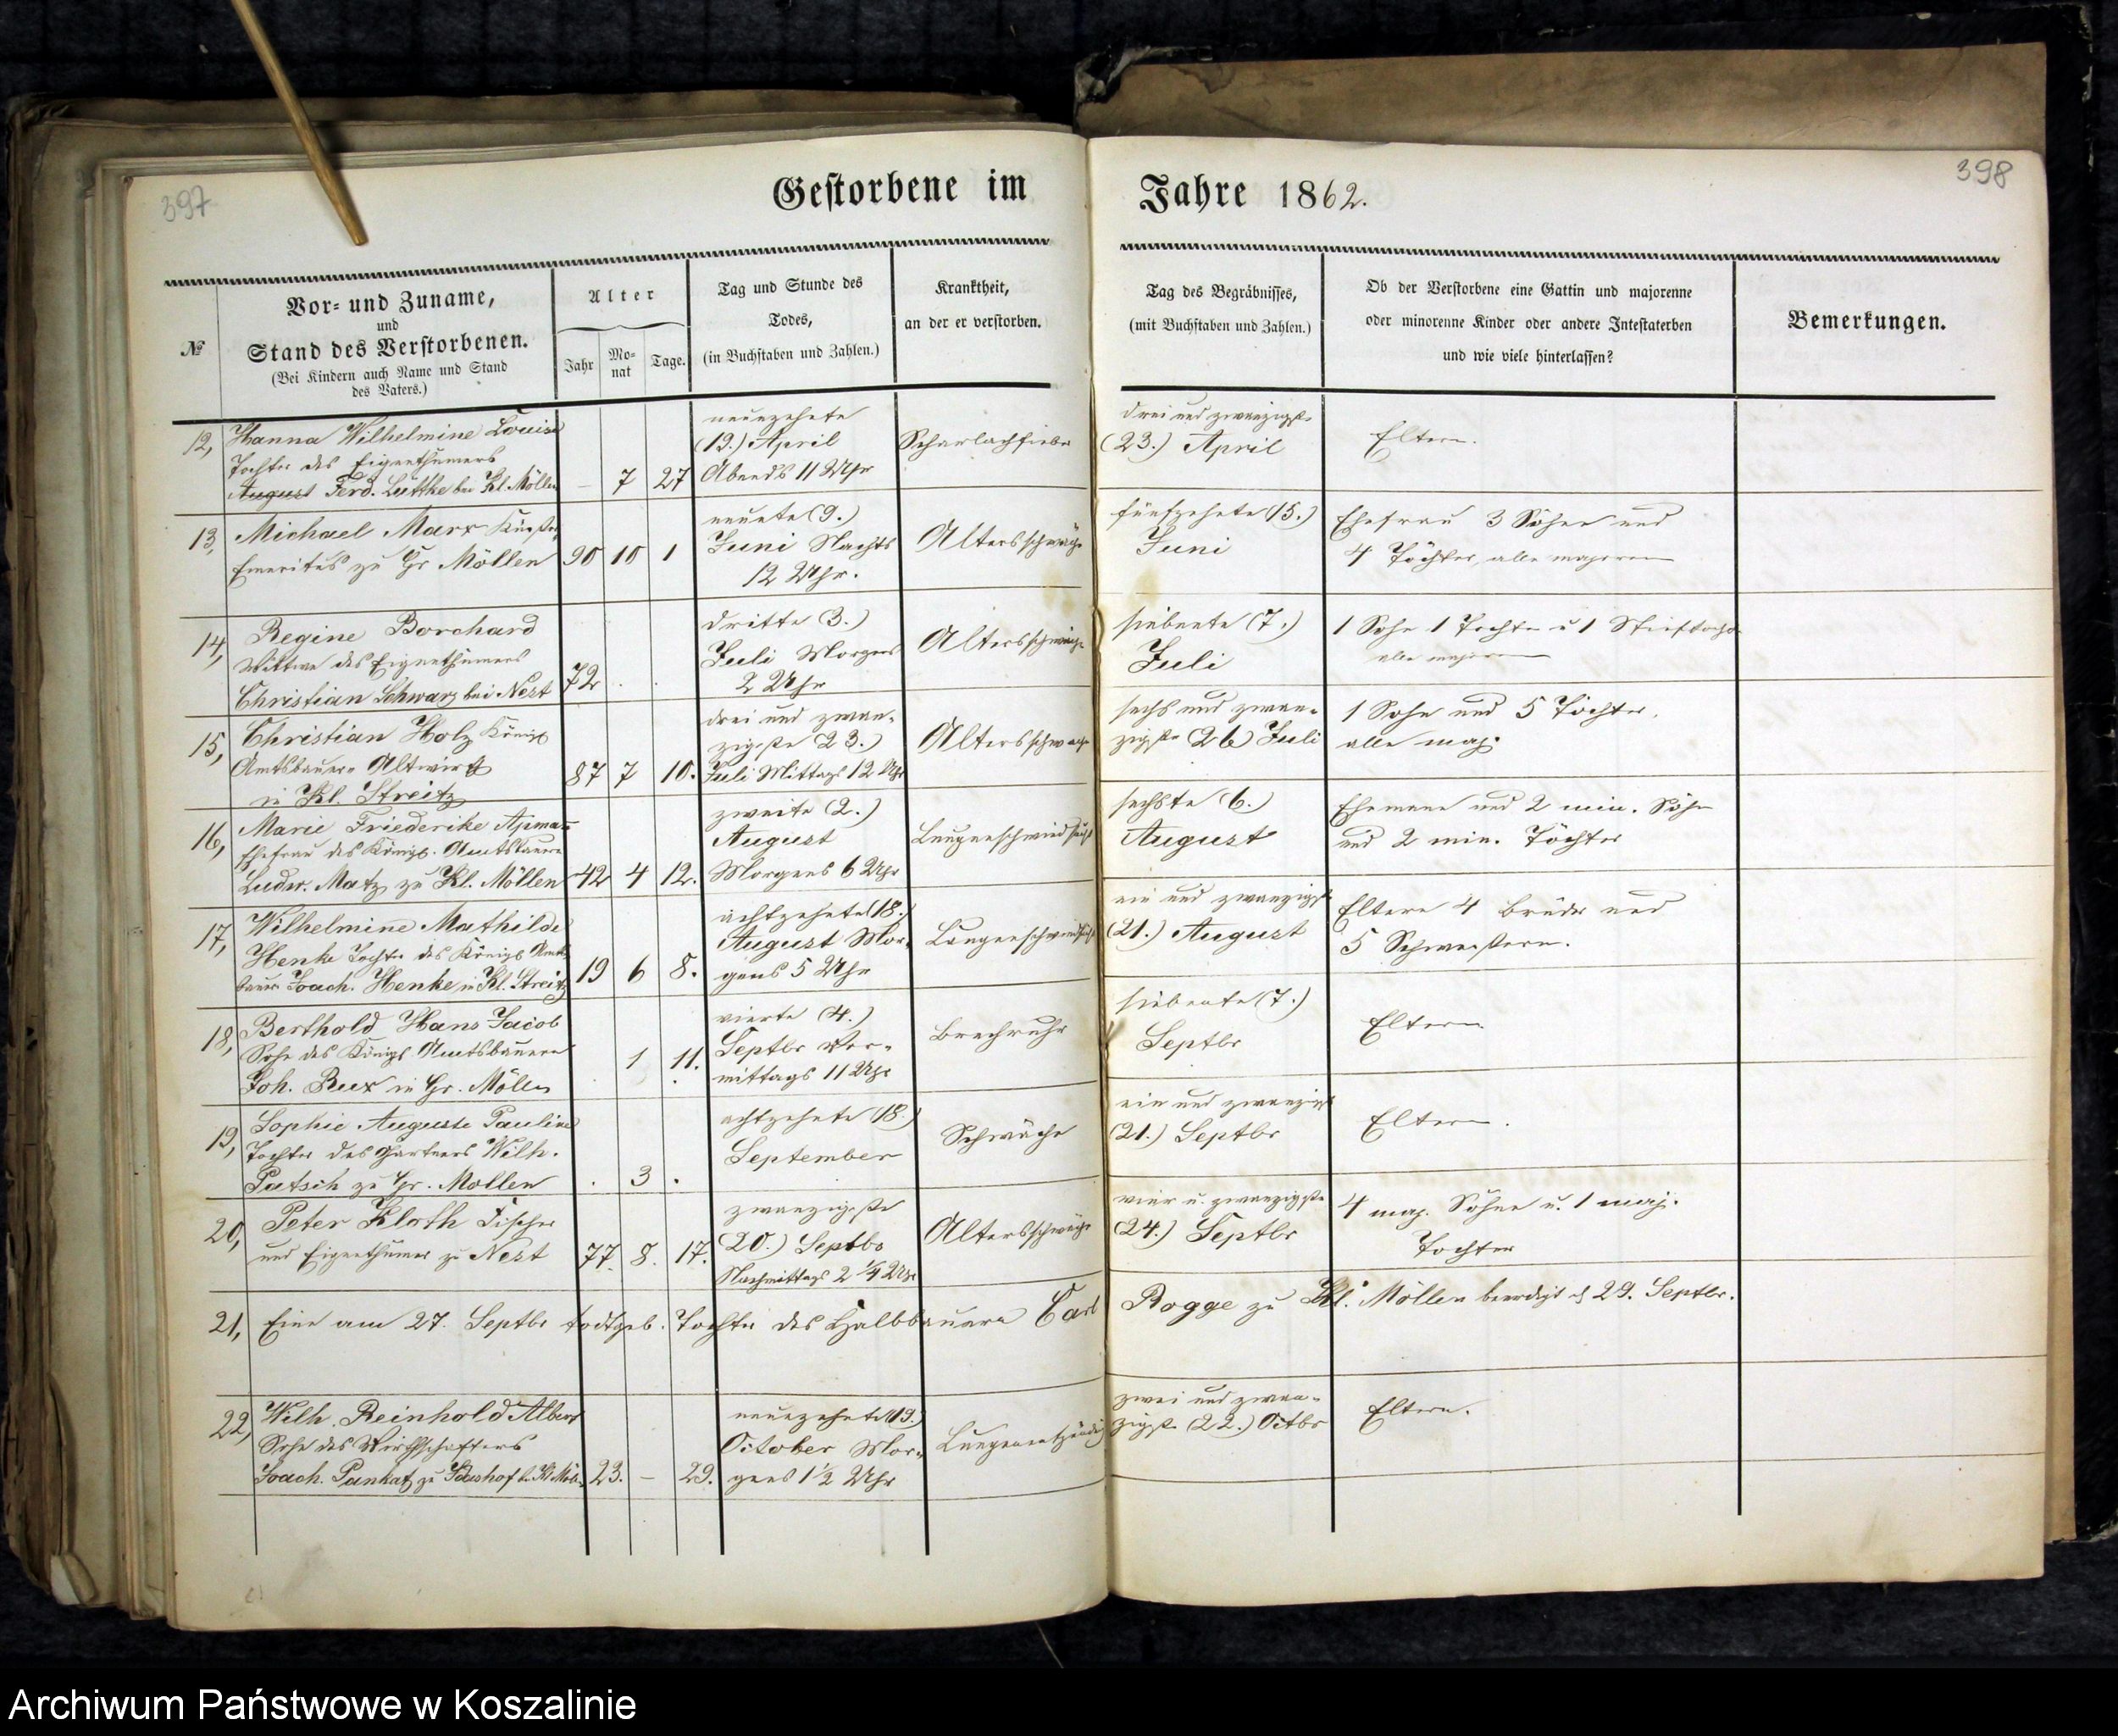 397
398
Gestorbene im
Jahre 1862.
№
Vor- und Zuname,
und
Stand des Verstorbenen.
(Bei Kindern auch Name und Stand
des Vaters.)
Alter
Jahr
Mo-
nat
Tage.
Tag und Stunde des
Todes,
(in Buchstaben und Zahlen.)
Krankheit,
an der er verstorben.
Tag des Begräbnisses,
(mit Buchstaben und Zahlen.)
Ob der Verstorbene eine Gattin und majorenne
oder minorenne Kinder oder andere Intestaterben
und wie viele hinterlassen?
Bemerkungen.
12,
Hanna Wilhelmine Louise
Tochter des Eigenthümers
August Ferd. Lüttke bei Kl. Möllen
–
7
27
neunzehnte
(19.) April
Abends 11 Uhr
Scharlachfieber
drei und zwanzigste
(23.) April
Eltern.
13,
Michael Marx Küster
Emeritus zu Gr Möllen
90
10
1
neunte (9.)
Juni Nachts
12 Uhr.
Altersschwäche
fünfzehnte (15.)
Juni
Ehefrau 3 Söhne und
4 Töchter, alle majorenn
14,
Regine Borchard
Wittwe des Eigenthümers
Christian Schwarz bei Nest
72
.
.
dritte (3.)
Juli Morgens
2 Uhr
Altersschwäche
siebente (7.)
Juli
1 Sohn 1 Tochter u 1 Stieftocht
alle majorenn
15,
Christian Holz Königl
Amtsbauer Altwirth
in Kl. Streitz
87
7
10.
drei und zwan-
zigste (23.)
Juli Mittags 12 Uhr
Altersschwäche
sechs und zwan-
zigste (26) Juli
1 Sohn und 5 Töchter,
alle maj.
16,
Marie Friederike Apmann
Ehefrau des Königl. Amtsbauern
Ludw. Matz zu Kl. Möllen
42
4
12.
zweite (2.)
August
Morgens 6 Uhr
Lungenschwindsucht
sechste (6.)
August
Ehemann und 2 min. Söhne
und 2 min. Töchter
17,
Wilhelmine Mathilde
Henke Tochter des Königl Amts
bauer Joach. Henke in Kl. Streitz
19
6
8.
achtzehnte (18.)
August Mor-
gens 5 Uhr
Lungenschwindsucht
ein und zwanzigste
(21.) August
Eltern 4 Brüder und
5 Schwestern.
18,
Berthold Hans Jacob
Sohn des Königl Amtsbauern
Joh. Rux in Gr. Möllen
.
1
11.
vierte (4.)
Septbr Vor-
mittags 11 Uhr
Brechruhr
siebente (7.)
Septbr
Eltern.
19,
Sophie Auguste Pauline
Tochter des Gärtners Wilh.
Patsch zu Gr. Möllen
.
3
.
achtzehnte (18.)
September
Schwäche
ein und zwanzigst
(21.) Septbr
Eltern.
20,
Peter Kloth Fischer
und Eigenthümer zu Nest
77.
8.
17.
zwanzigste
(20.) Septbr
Nachmittags 2 1/4 Uhr
Altersschwäche
vier u. zwanzigste
(24.) Septbr
4 maj. Söhne u. 1 maj.
Tochter
21,
Eine am 27. Septbr todtgeb. Tochter des Halbbauern Carl Rogge zu Kl. Möllen beerdigt d 29. Septbr.
22,
Wilh. Reinhold Albert
Sohn des Wirthschafters
Joach. Pankatz zu
23.
–
29.
neunzehnte (19.)
October Mor-
gens 1 1/2 Uhr
Lungenentzündg
zwei und zwan-
zigste (22.) Octbr
Eltern.
Archiwum Państwowe w Koszalinie